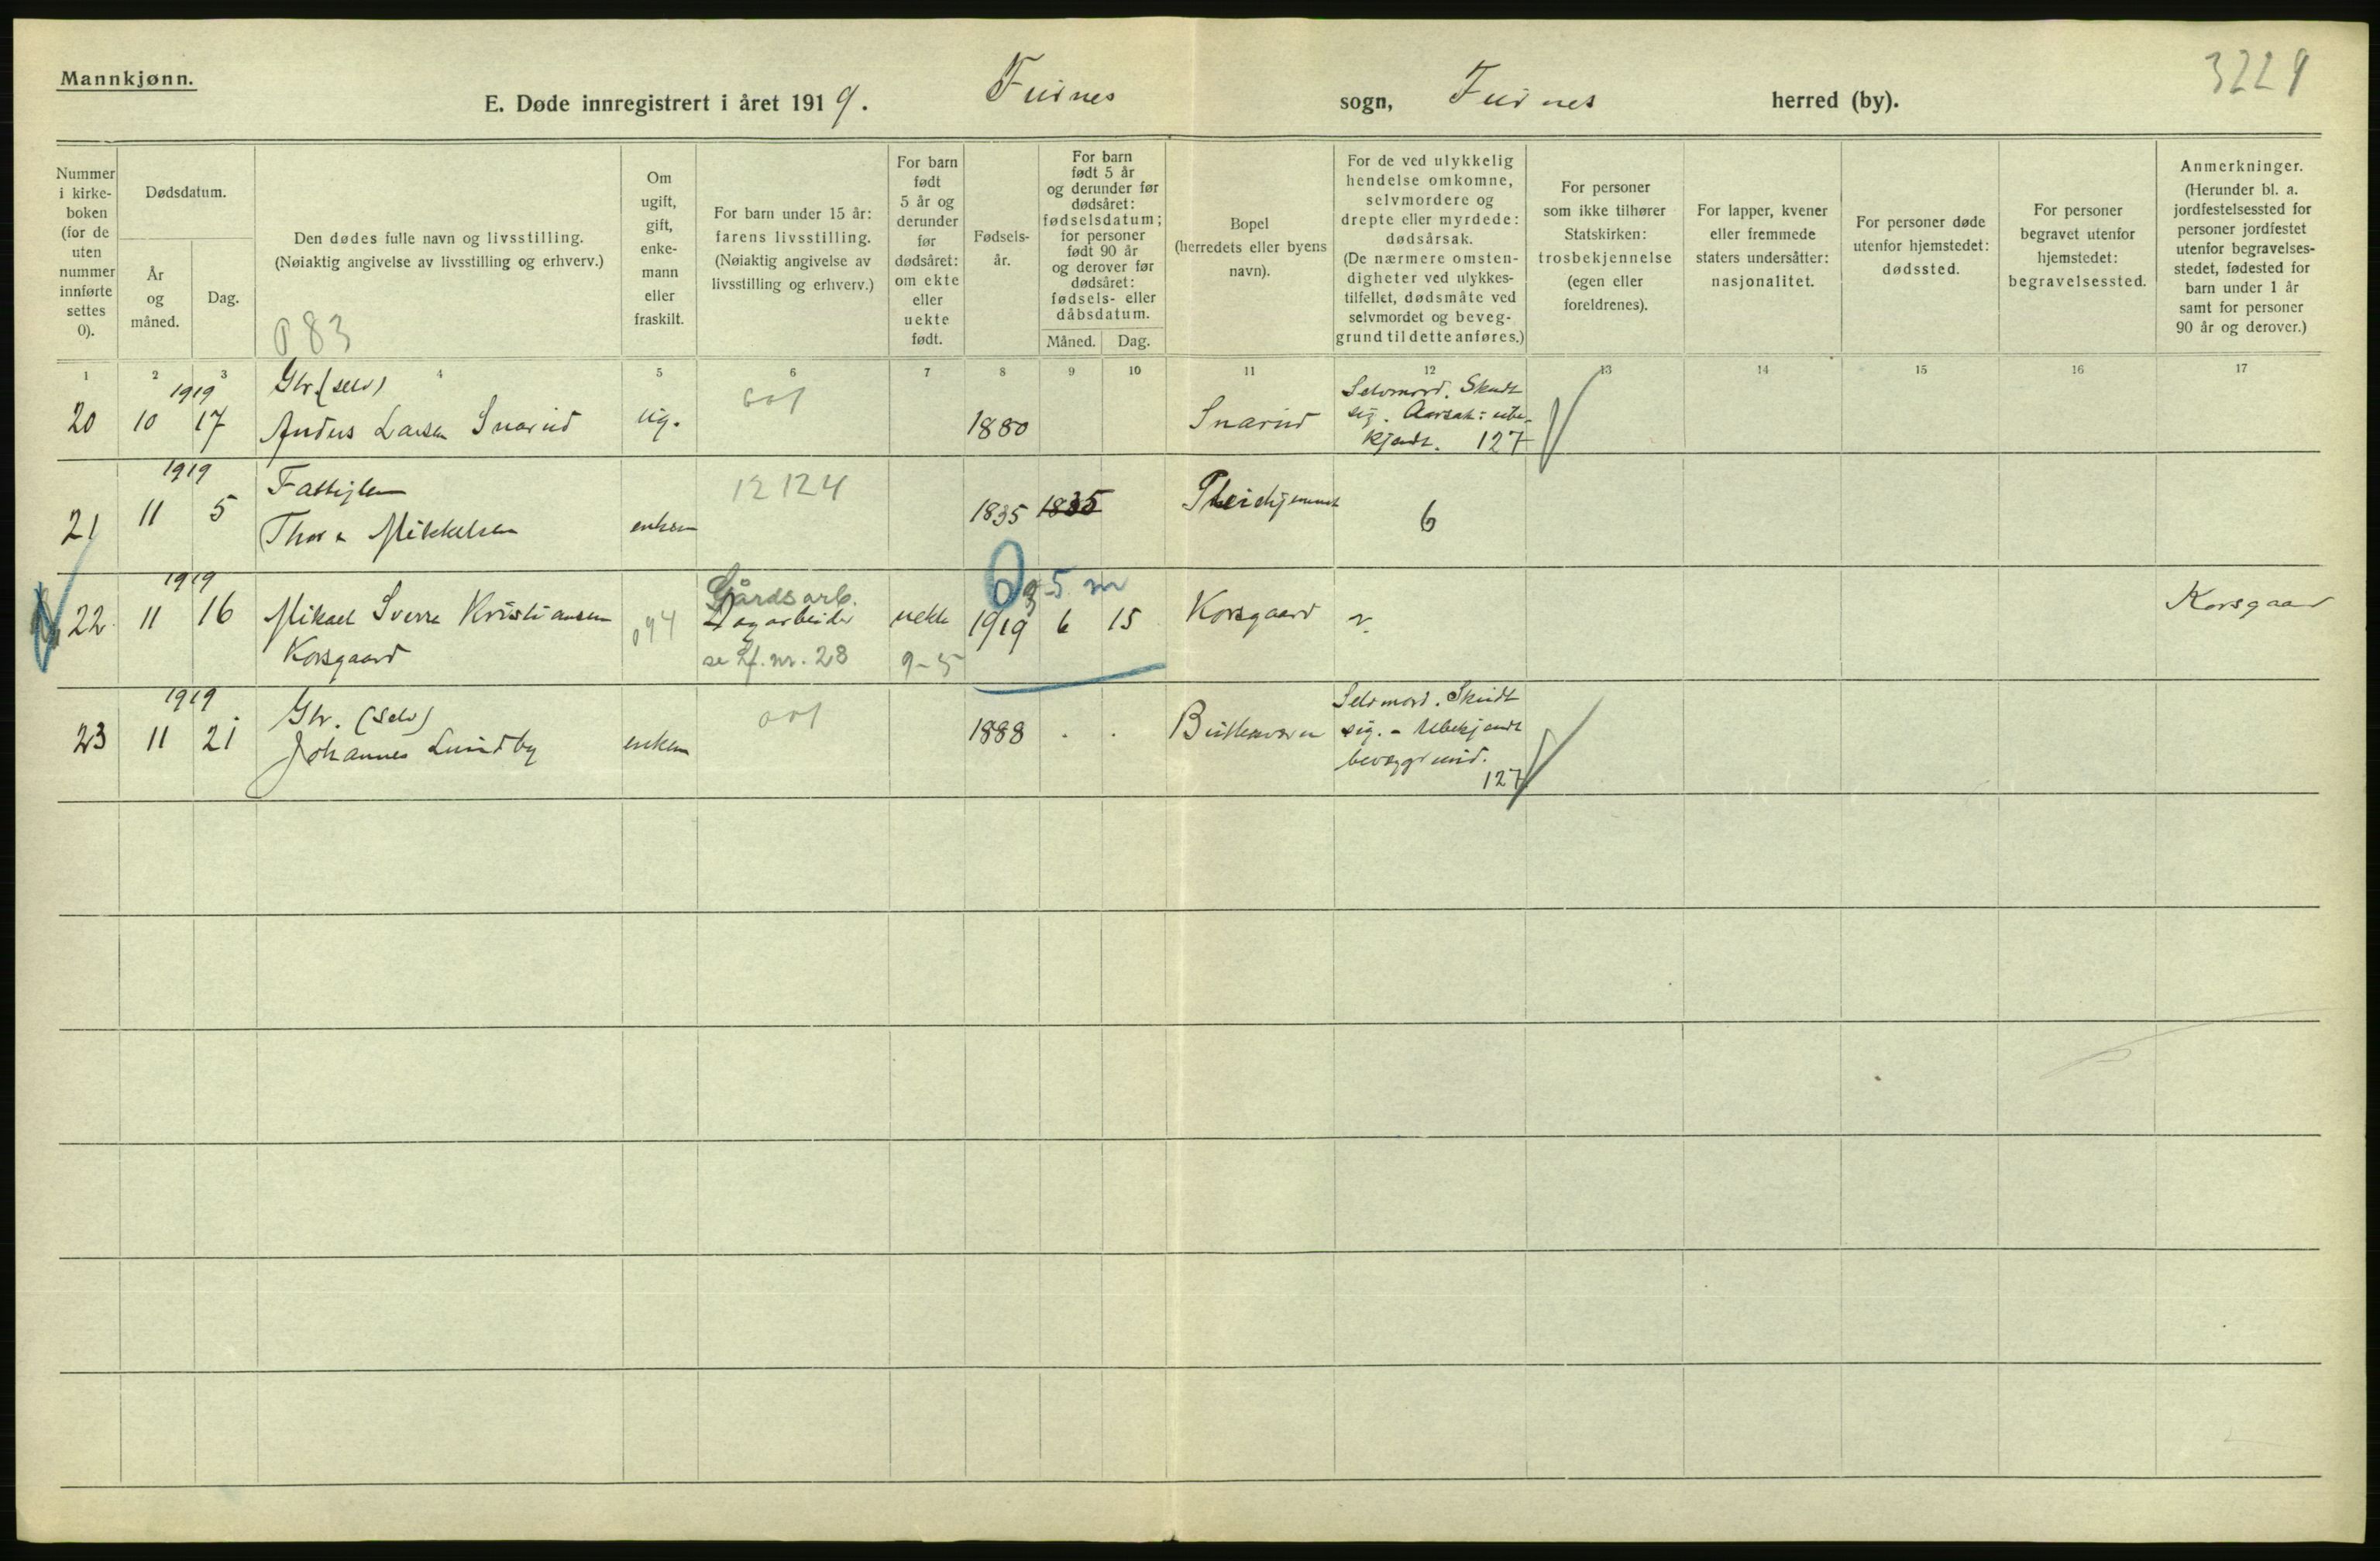 Mannkjønn.
E. Døde innregistrert i året 1919. Furnes sogn, Furnes herred (by).
3229
Nummer i kirke-boken (for de uten nummer innførte settes 0).
Dødsdatum.
År og måned.
Dag.
Den dødes fulle navn og livsstilling.
(Nøiaktig angivelse av livsstilling og erhverv.)
083
Om ugift, gift, enke-mann eller fraskilt.
For barn under 15 år: farens livsstilling.
(Nøiaktig angivelse av livsstilling og erhverv.)
For barn født 5 år og derunder før dødsåret: om ekte eller uekte født.
Fødsels-år.
For barn født 5 år og derunder før dødsåret: fødselsdatum; for personer født 90 år og derover før dødsåret: fødsels- eller dåbsdatum.
Måned. Dag.
Bopel (herredets eller byens navn).
For de ved ulykkelig hendelse omkomne, selvmordere og drepte eller myrdede: dødsårsak.
(De nærmere omsten-digheter ved ulykkes-tilfellet, dødsmåte ved selvmordet og beveg-grund til dette anføres.)
For personer som ikke tilhører Statskirken: trosbekjennelse (egen eller foreldrenes).
For lapper, kvener eller fremmede staters undersåtter: nasjonalitet.
For personer døde utenfor hjemstedet: dødssted.
For personer begravet utenfor hjemstedet: begravelsessted.
Anmerkninger.
(Herunder bl. a. jordfestelsessted for personer jordfestet utenfor begravelses-stedet, fødested for barn under 1 år samt for personer 90 år og derover.)
1 2 3 4 5 6 7 8 9 10 11 12 13 14 15 16 17
1919 Gbr. (selv) 001 Selvmord. Skudt
20 10 17 Anders Larsen Snarud ug. 1880 Snarud sig. Aarsak: ube-
kjendt. 127
1919 Fattiglem 12124
21 11 5 Mikkelsen enkem 1835 1835 Pleiehjemmet 6
1919 Gårdsarb. 5 m
22 11 16 Mikael Sverre Kristiansen 094 Dagarbeider uekte 1919 6 15 Korsgaard Korsgaard
Korsgaard se Lf. nr. 28 9-5
1919 Gbr. (selv) 001 Selvmord. Skudt
23 11 21 Johannes Lundby enkem 1888 . . sig. - Ubekjendt
bevæggrund.
127